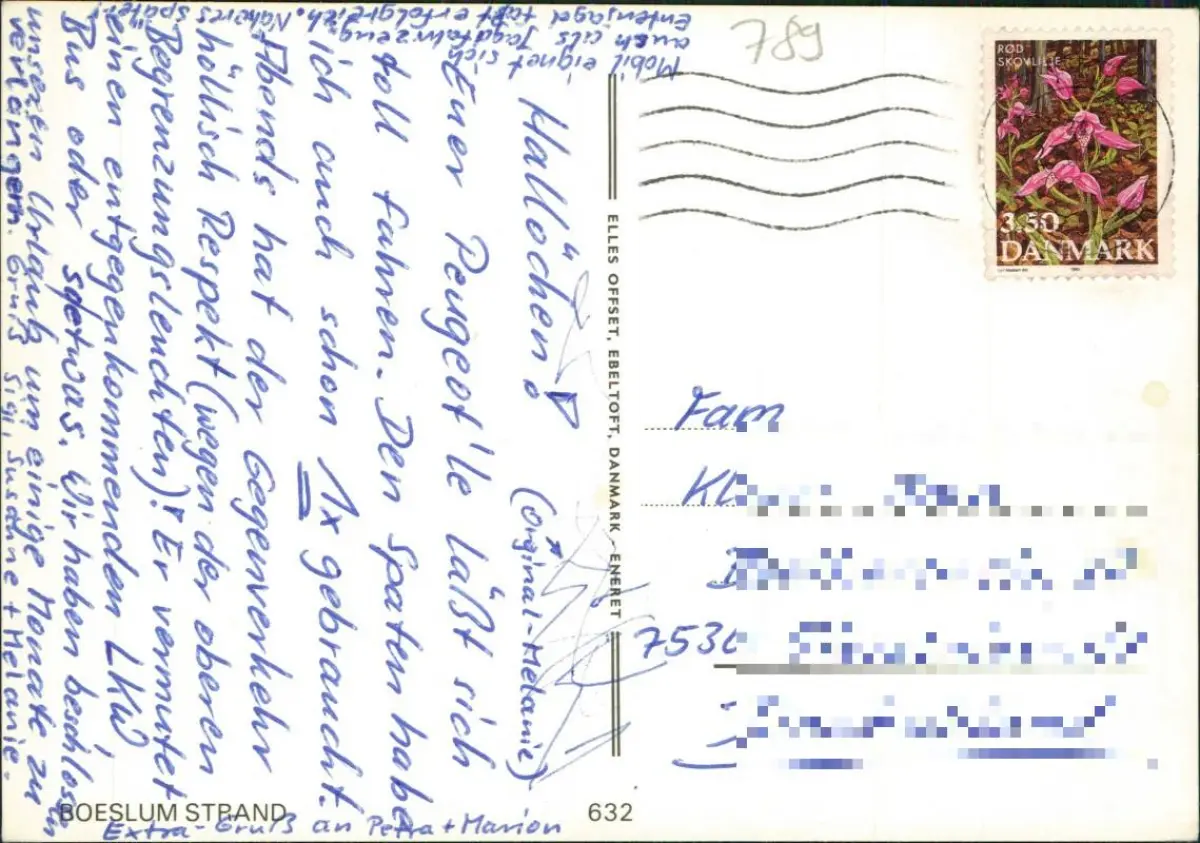 Hallöchen!
(Orginal-Melanie)
Euer Peugeot'le läßt sich
toll fahren. Den Spaten habe
ich auch schon 1x gebraucht.
Abends hat der Gegenverkehr
höllisch Respekt (wegen der oberen
"Begrenzungsleuchten)!" Er vermutet
einen entgegenkommenden LKW,
Bus oder sdetwas. Wir haben beschlossen
unseren Urlaub um einige Monate zu
verlängern. Gruß Sigi, Susanne + Melanie.
Mobil eignet sich
auch als Jagdfahrzeug.
Entenjagd fast erfolgreich. Näheres später!
Extra-Gruß an Petra + Marion
BOESLUM STRAND
632
ELLES OFFSET, EBELTOFT, DANMARK / ENERET
789
RØD
SKOVLILJE
3.50
DANMARK
Fam
Kl
753